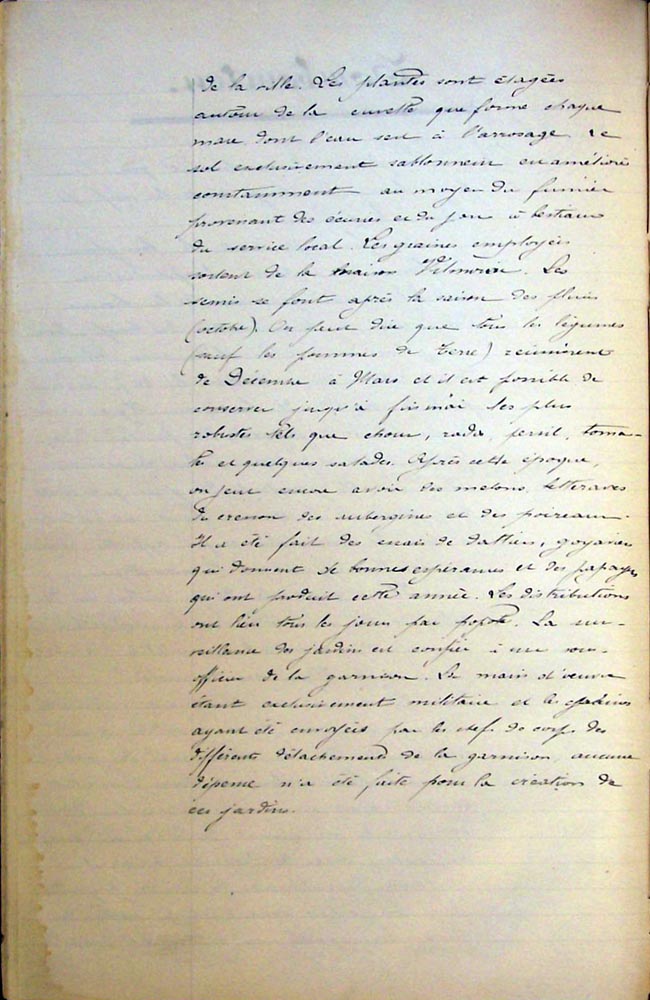 de la ville. Les plantes sont étagées
autour de la cuvette que forme chaque
mare dont l'eau sert à l'arrosage. Le
sol exclusivement sablonneux est amélioré
constamment au moyen du fumier
provenant des écuries et du parc à bestiaux
du service local. Les graines employées
sortent de la maison Vilmorin. Les
semis se font après la saison des pluies
(octobre). On peut dire que tous les légumes
(sauf les pommes de terre) réussissent
de Décembre à Mars et il est possible de
conserver jusqu'à fin mai les plus
robustes tels que choux, radis, persil, toma-
tes et quelques salades. Après cette époque,
on peut encore avoir des melons, betteraves
du cresson des aubergines et des poireaux.
Il a été fait des essais de dattiers, goyaviers
qui donnent de bonnes espérances et des papayes
qui ont produit cette année. Les distributions
ont lieu tous les jours par popote. La sur-
veillance des jardins est confiée à un sous-
officier de la garnison. La main d'œuvre
étant exclusivement militaire et les graines
ayant été envoyées par les chefs de corps des
différents détachements de la garnison, aucune
dépense n'a été faite pour la création de
ces jardins.